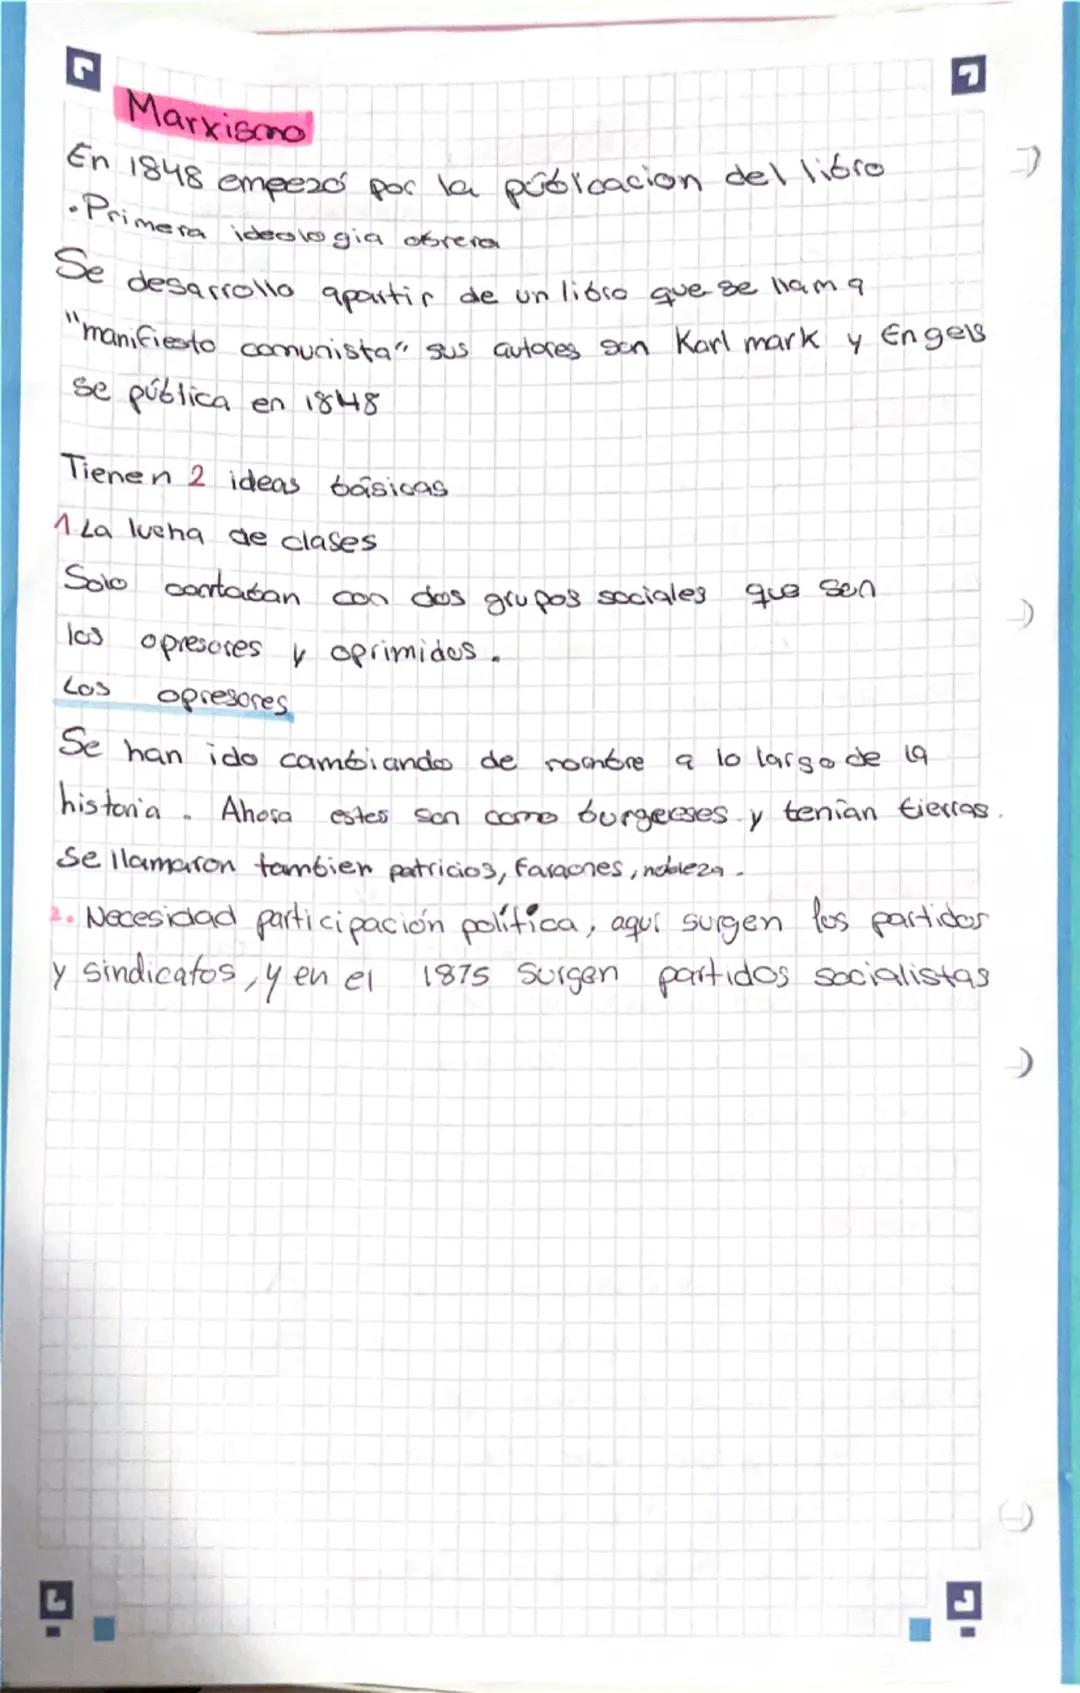 Marxismo
En 1848 empezó por la públicacion del libro
• Primera ideologia obrera
Se desarrollo apartir de un libro que se llama
"manifiesto comunista" sus autores son Karl mark y Engels
se pública en 1848
Tienen 2 ideas básicas
1. La lucha de clases
Solo contaban con dos grupos sociales que son
los opresores y oprimidos.
Los opresores
Se han ido cambiando de nombre a lo largo de la
historia. Ahora estos son como burgeses y tenían tierras.
Se llamaron tambien patricios, faraones, nobleza.
2. Necesidad participación política, aquí surgen los partidos
y sindicatos, y en el 1875 surgen partidos socialistas